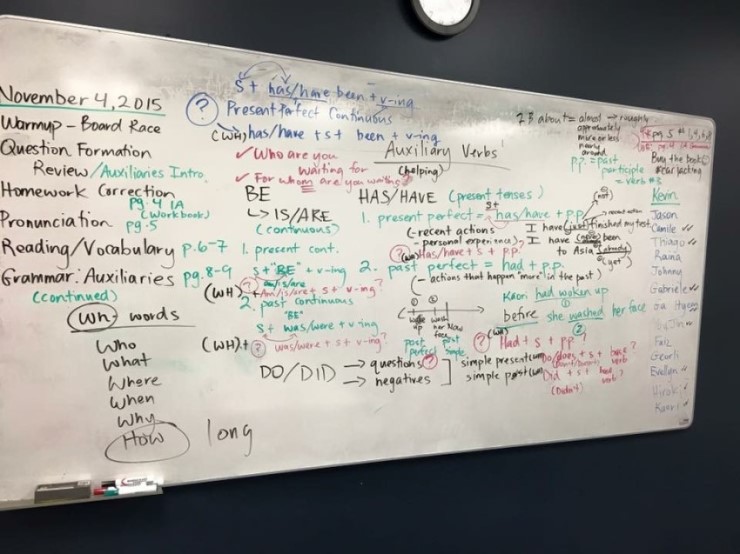 November 4, 2015
Warmup - Board Race
Question Formation
Review/Auxiliaries Intro.
Homework Correction
pg. 4 1A
(workbook)
Pronunciation pg. 5
Reading/Vocabulary p. 6-7
Grammar: Auxiliaries pg. 8-9
(continued)
Wh- words
Who
What
Where
When
Why
How long
S + has/have been + v-ing
? Present Perfect Continuous
(WH) has/have + s + been + v-ing
✓ Who are you waiting for
✓ For whom are you waiting?
Auxiliary Verbs
(helping)
BE
↳ IS/ARE
(continuous)
1. present cont.
S + "BE" + v-ing
am/is/are
(WH) ? + Am/is/are + s + v-ing?
2. past continuous
"BE"
S + was/were + v-ing
(WH) + ? was/were + s + v-ing?
DO/DID → questions ?
→ negatives
simple present
simple past
Did + s +
(didn't)
HAS/HAVE (present tenses)
1. present perfect = has/have + p.p.
(-recent actions
- personal experience)
? (WH) Has/have + s + p.p.
I have just finished my test
I have been
to Asia already
(yet)
2. past perfect = had + p.p.
(- actions that happen "more" in the past)
Kaori had woken up
①
before she washed her face
②
① ②
woke up
wash her face
Now
past perfect
past simple
? (WH) Had + s + pp ?
about = almost → roughly
approximately
more or less
nearly
around
p.p. = past participle
= verb #3
pg 5
Buy the book
carjacking
Kevin
Jason
Camile ✓
Thiago ✓
Raina
Johnny
Gabriele ✓
Faiz
Geurli
Evellen ✓
Hiroki
Kaori ✓